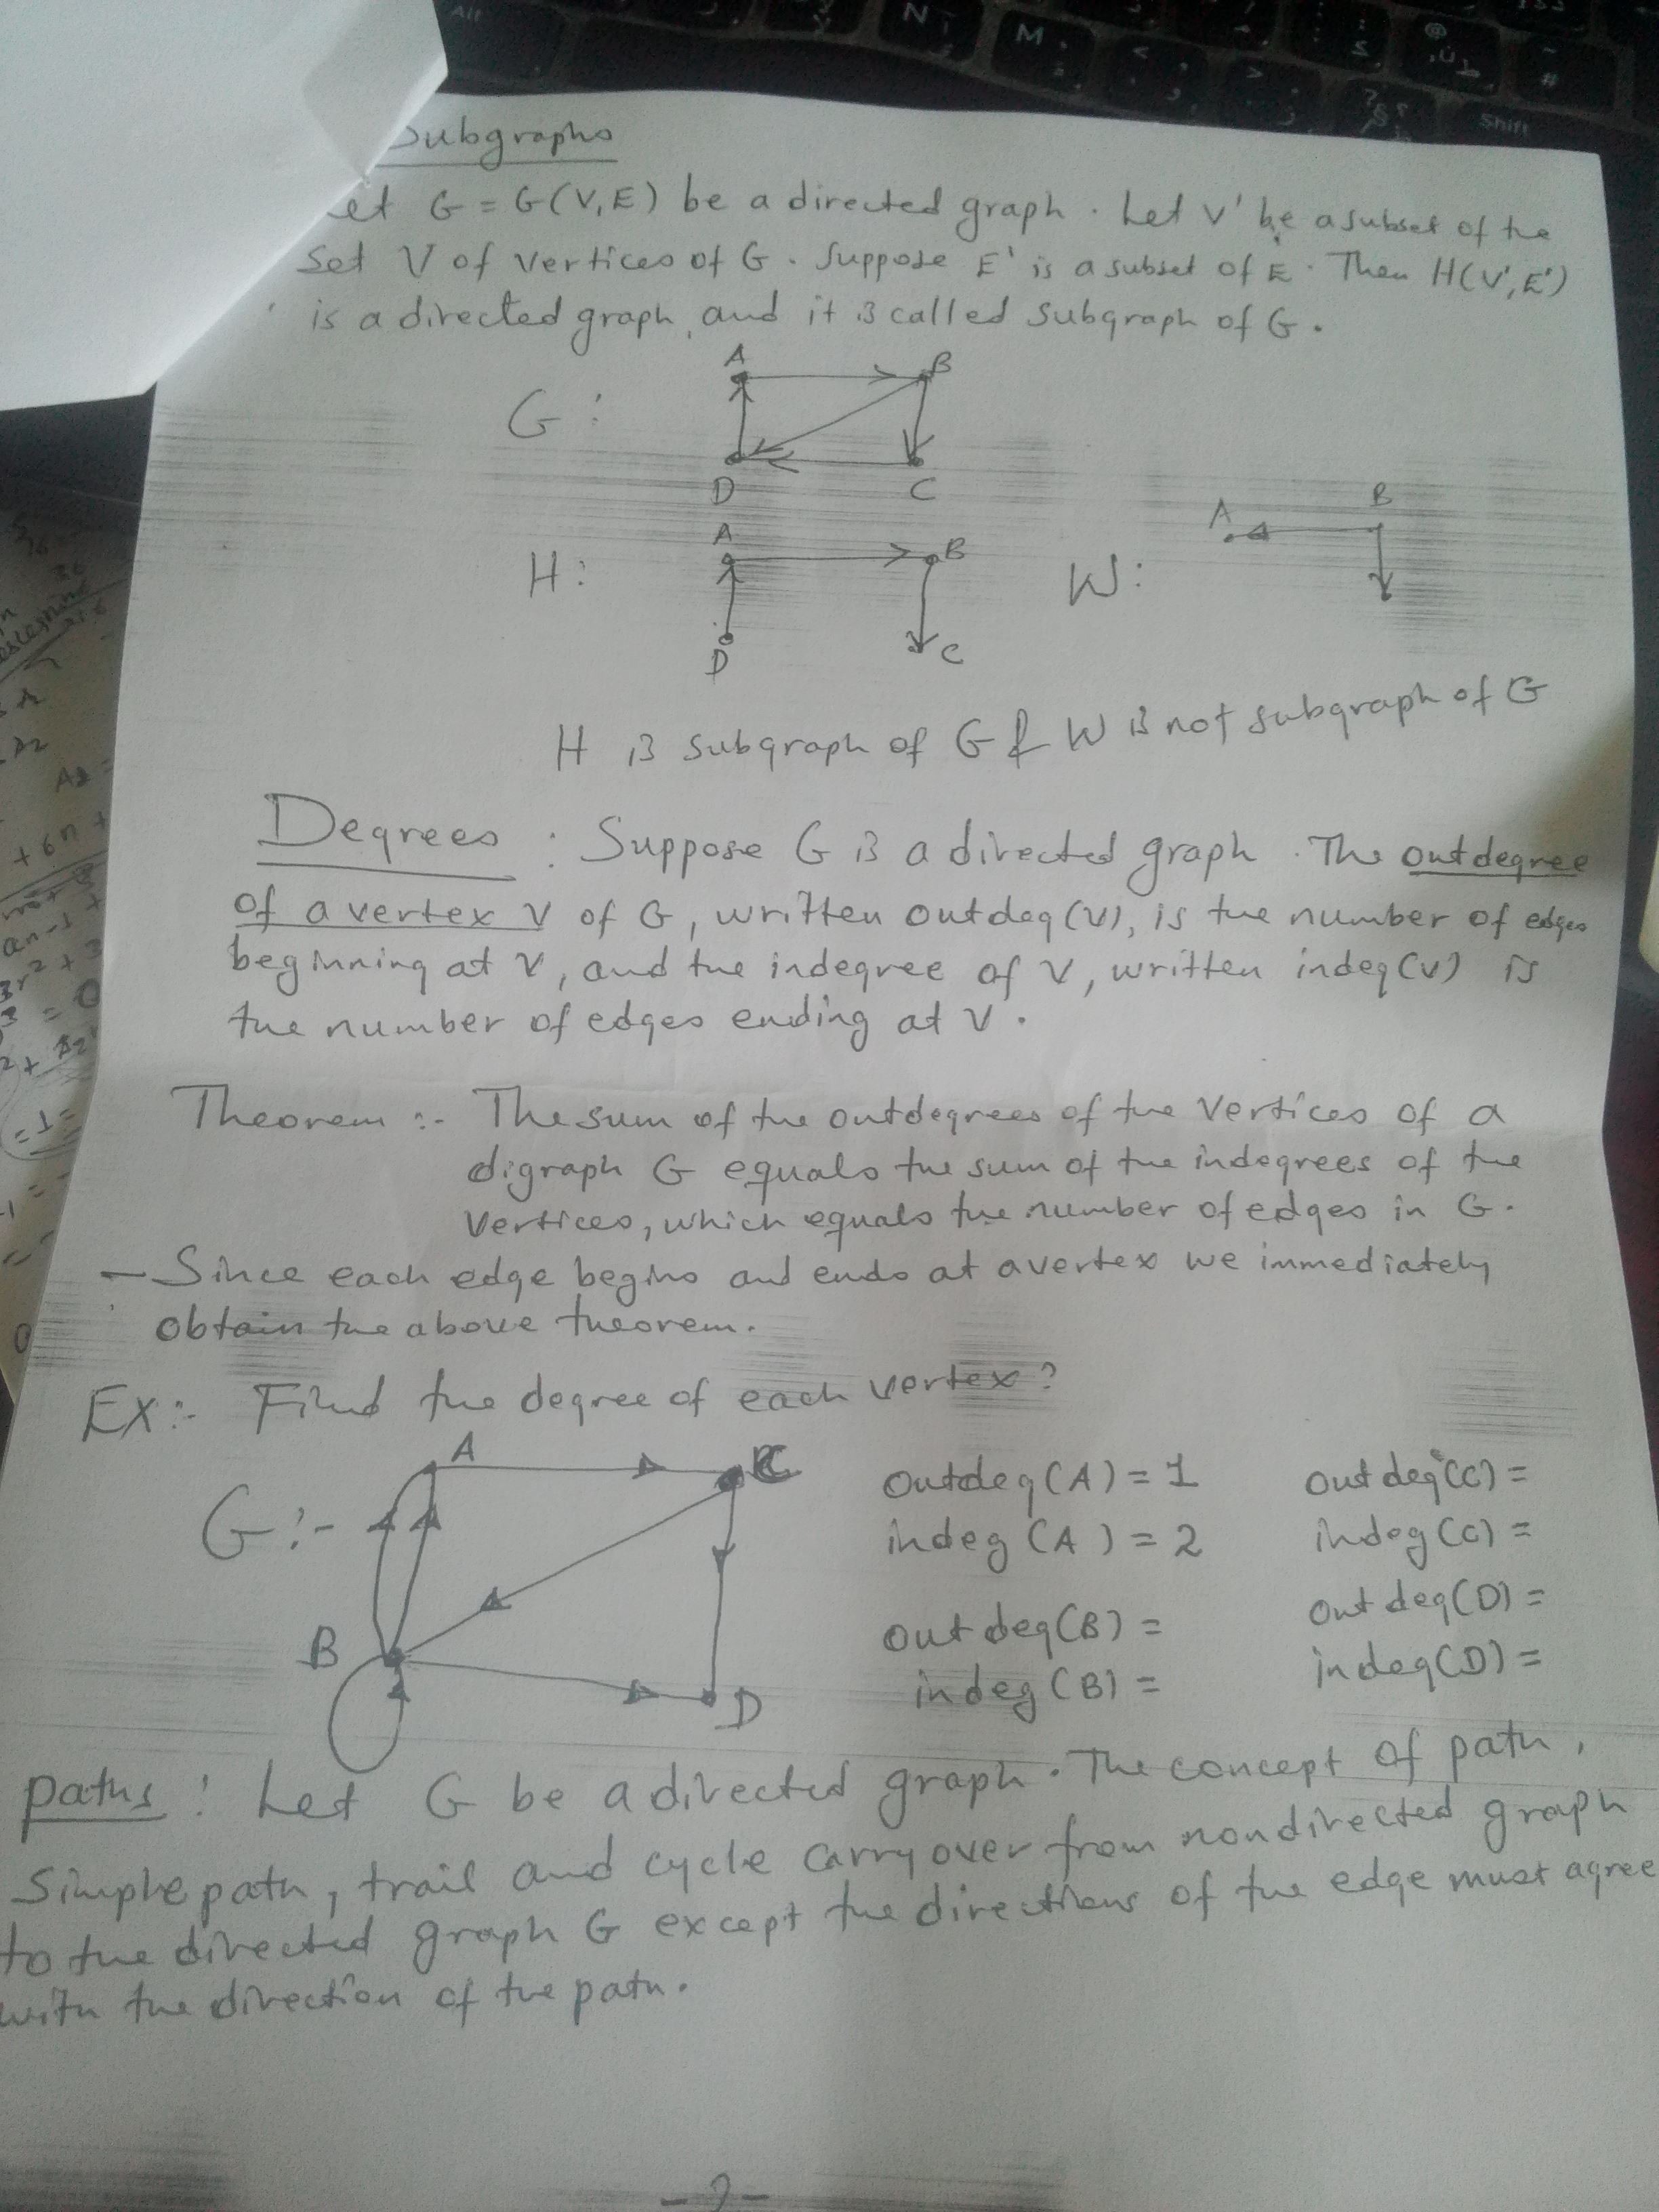 Subgraphs
Let G = G(V,E) be a directed graph. Let V' be a subset of the
Set V of vertices of G. Suppose E' is a subset of E. Then H(V',E')
is a directed graph, and it is called subgraph of G.
A B
G:
D C
A B
A B
H: W:
D C
H is subgraph of G & W is not subgraph of G
Degrees : Suppose G is a directed graph. The outdegree
of a vertex V of G, written outdeg(V), is the number of edges
beginning at V, and the indegree of V, written indeg(V) is
the number of edges ending at V.
Theorem :- The sum of the outdegrees of the vertices of a
digraph G equals the sum of the indegrees of the
vertices, which equals the number of edges in G.
— Since each edge begins and ends at a vertex we immediately
obtain the above theorem.
EX:- Find the degree of each vertex?
A C
outdeg(A) = 1 outdeg(C) =
G:- indeg(A) = 2 indeg(C) =
outdeg(B) = outdeg(D) =
B indeg(B) = indeg(D) =
D
paths : Let G be a directed graph. The concept of path,
Simple path, trail and cycle carry over from nondirected graph
to the directed graph G except the directions of the edge must agree
with the direction of the path.
Alt N M Shift